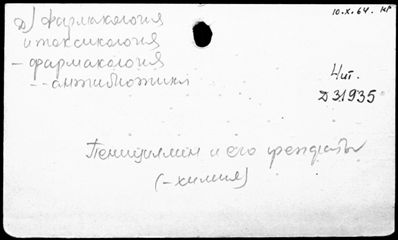 10.X.64. НР
д) фармакология
и токсикология
– фармакология
-- антибиотики
Чит.
Д 31935
Пенициллин и его
(– химия)